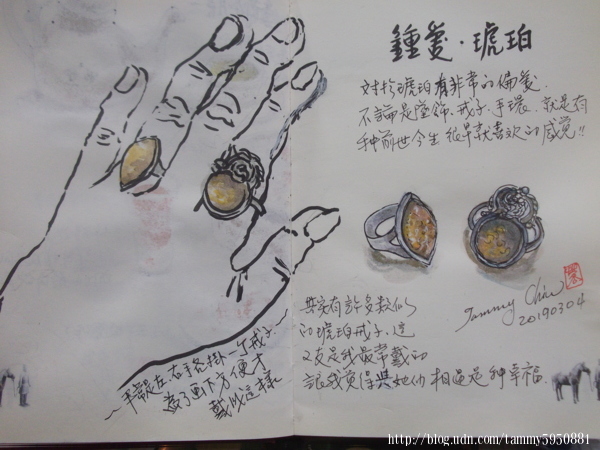 鍾愛·琥珀
對於琥珀有非常的偏愛.
不論是墜飾.戒子.手環.就是有
種前世今生很早就喜歡的感覺!!
其實有許多款似
的琥珀戒子.這
又是我最常戴的
讓我覺得與她們相遇是种幸福.
平常是左.右手各掛一个戒子
為了画下方便才
戴成這樣
Tammy Chiu
20190304
http://blog.udn.com/tammy5950881